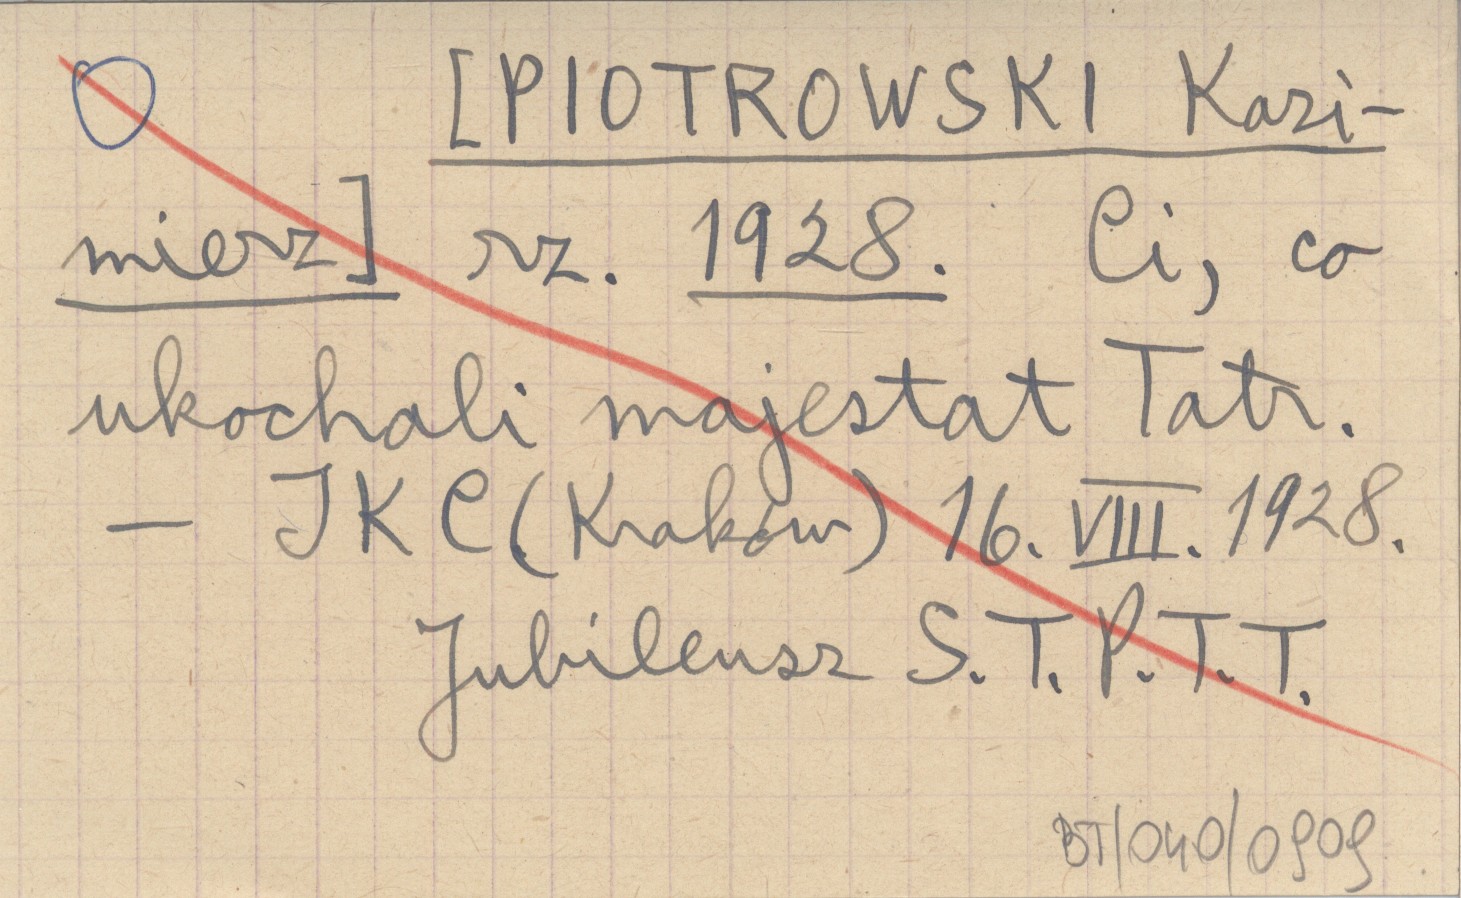 [PIOTROWSKI Kazi-
mierz] rz. 1928. Ci, co
ukochali majestat Tatr.
— IKC (Kraków) 16. VIII. 1928.
Jubileusz S.T.P.T.T.
BT/040/0909